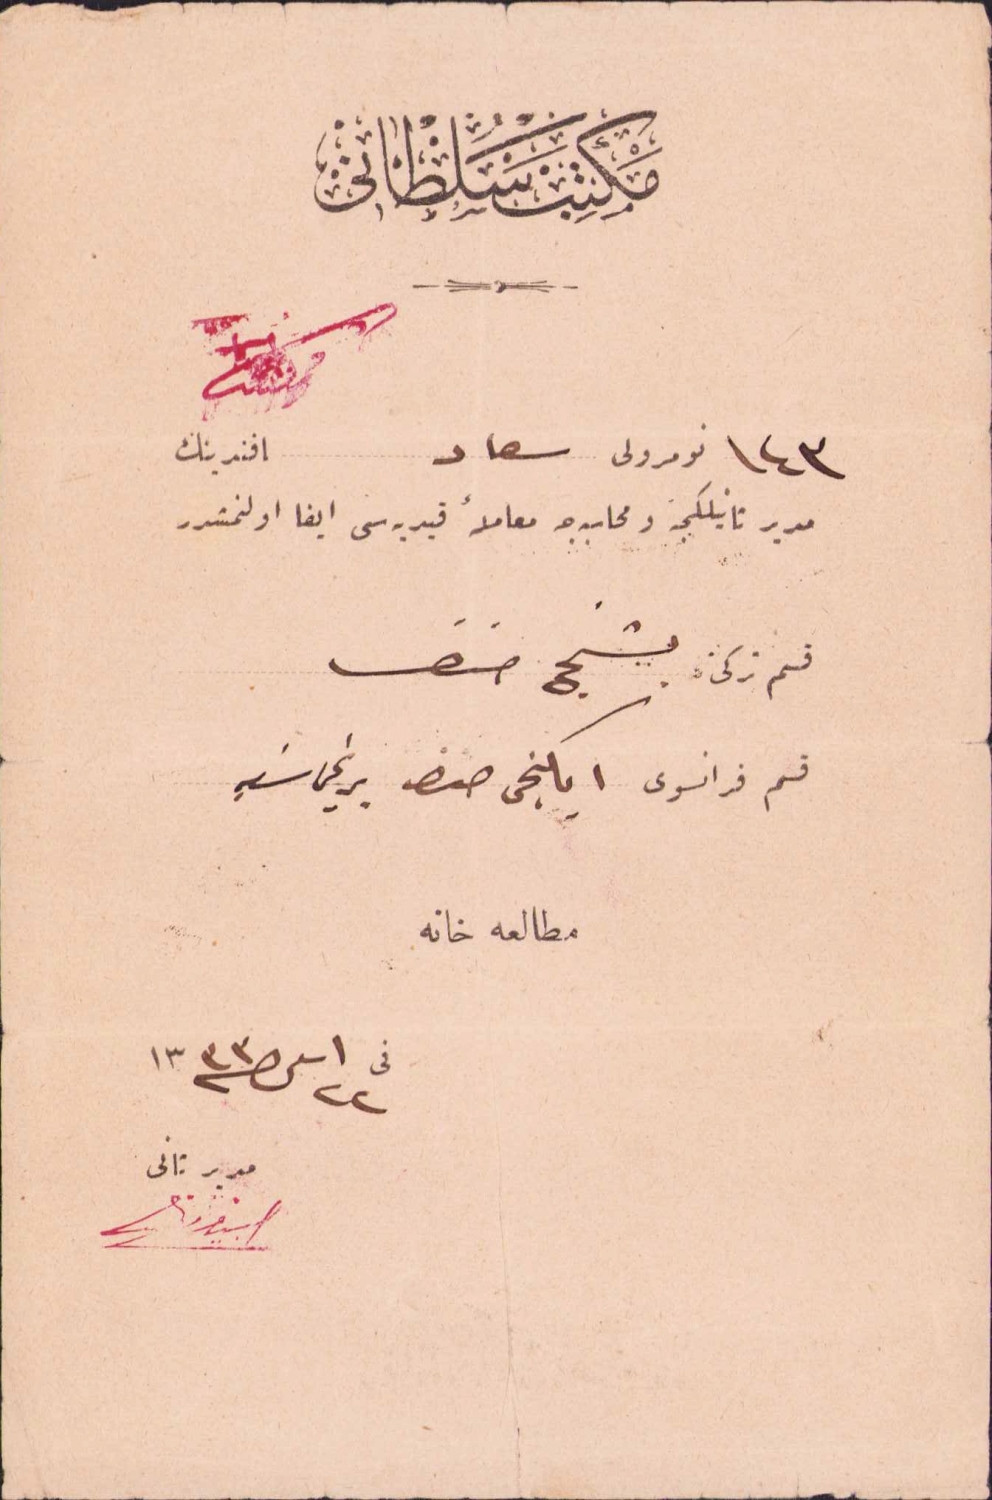 مكتب سلطانی
١٤٣ نومرولی سعاد افندینك
مدیر ثانیلكجه و محاسبه‌جه معاملهٔ قیدیه‌سی ایفا اولنمشدر
قسم تركی: بشنجی صنف
قسم فرانسوی ایكنجی صنف برنجی شعبه
مطالعه خانه
فی ٢٢ ١٣٣٣
مدیر ثانی